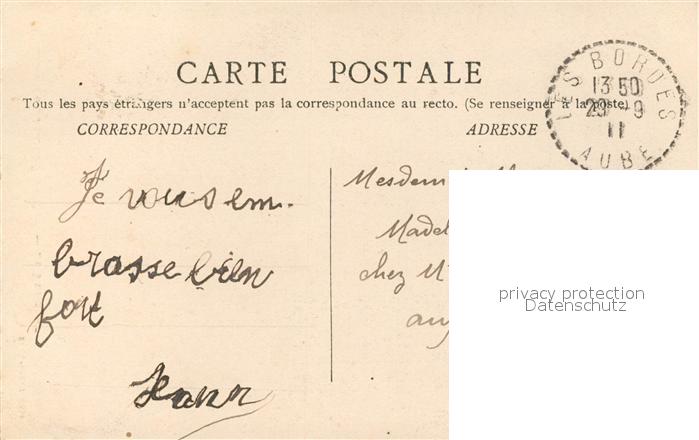 CARTE POSTALE
Tous les pays étrangers n'acceptent pas la correspondance au recto. (Se renseigner à la poste)
CORRESPONDANCE
ADRESSE
LES BORDES
13 50
29 - 9
11
AUBE
Je vous em.
brasse bien
fort
Mesdem
Madel
chez M
privacy protection
Datenschutz